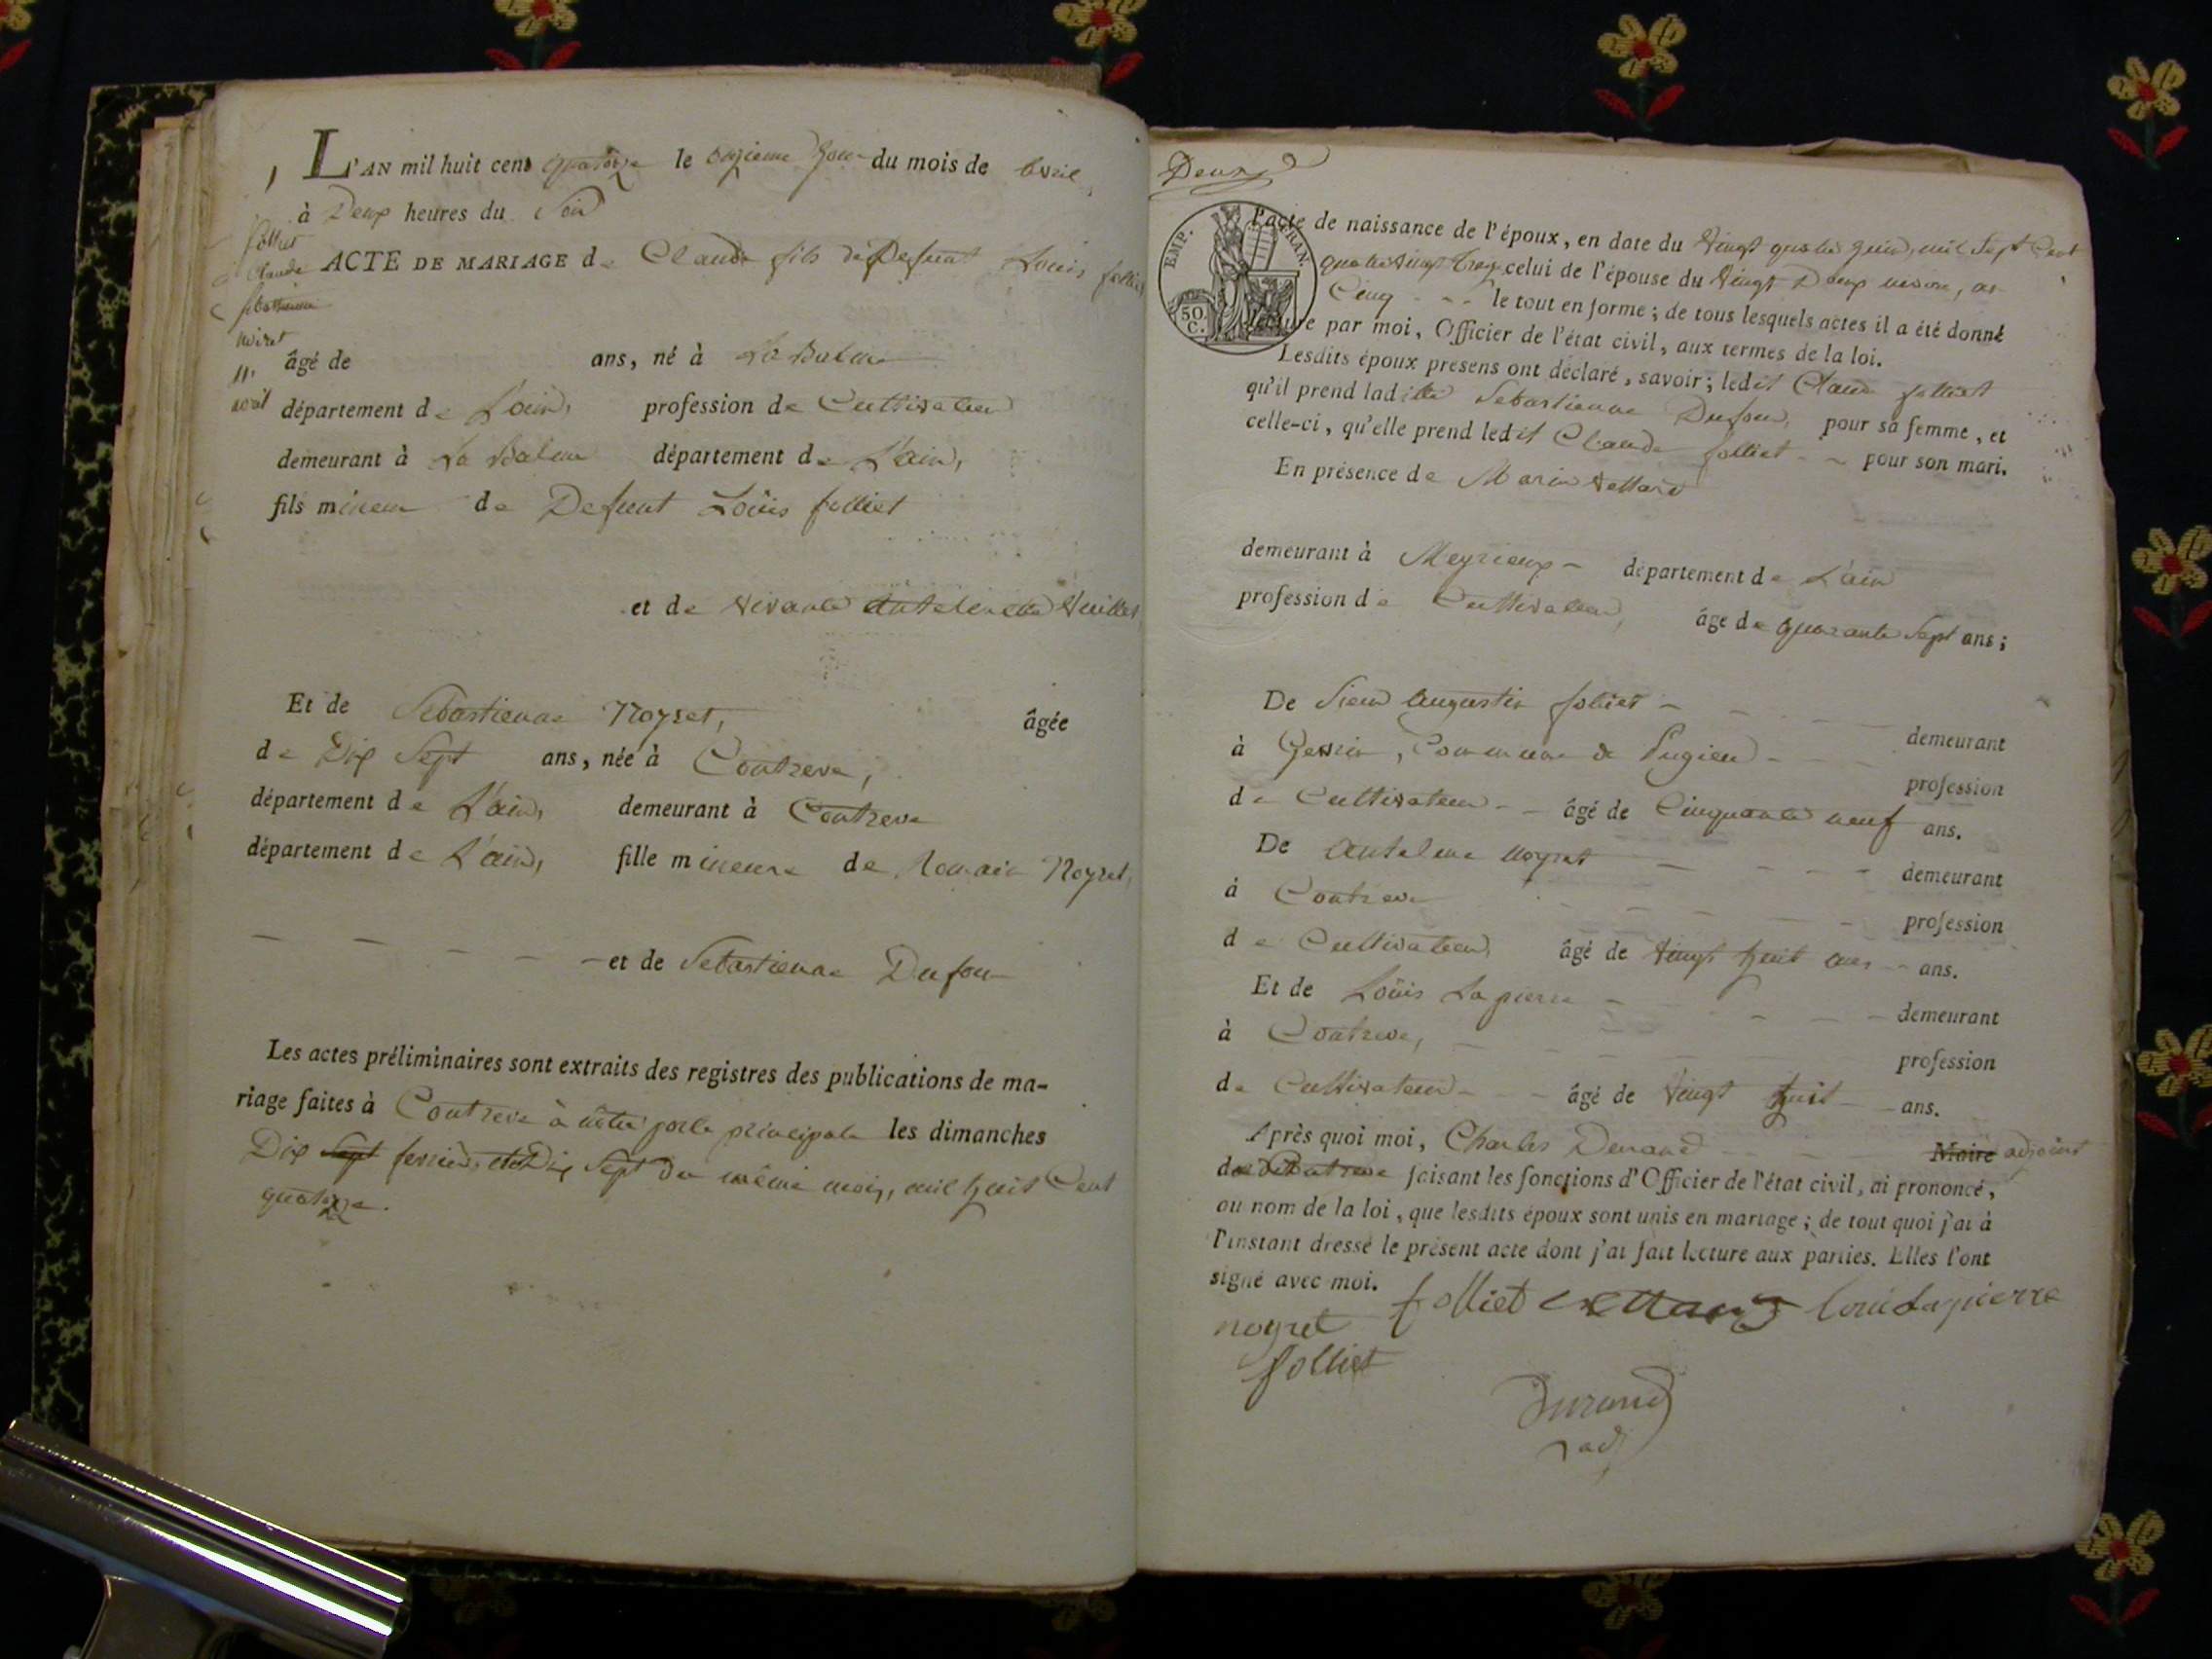 L'AN mil huit cent quatorze le onzieme Jour du mois de avril,
à Deux heures du Soir
folliet
Claude
sebastienne
noiret
11.
avril
ACTE DE MARIAGE de Claude fils de Defunt Louis folliet
âgé de ans, né à La Balme
département de L'ain, profession de Cultivateur
demeurant à La Balme département de L'ain,
fils mineur de Defunt Loüis folliet
et de vivante antelmette Vuillet
Et de Sebastienne Noyret, âgée
de Dix Sept ans, née à Contreve,
département de L'ain, demeurant à Contreve
département de L'ain, fille mineure de Romain Noyret,
et de Sebastienne Dufour
Les actes préliminaires sont extraits des registres des publications de ma-
riage faites à Contreve à nôtre porte principale les dimanches
Dix Sept fevrier, et Dix Sept du même mois, mil huit Cent
quatorze.
Deux
EMP. FRAN.
50. C.
l'acte de naissance de l'époux, en date du vingt quatre juin, mil Sept Cent
quatre vingt treize celui de l'épouse du vingt Deux nivose, an
Cinq le tout en forme; de tous lesquels actes il a été donné
lecture par moi, Officier de l'état civil, aux termes de la loi.
Lesdits époux présens ont déclaré, savoir; ledit Claude folliet
qu'il prend ladite Sebastienne Dufour, pour sa femme, et
celle-ci, qu'elle prend ledit Claude folliet pour son mari.
En présence de Marin Vettard
demeurant à Meyrieux département de L'ain
profession de Cultivateur, âge de quarante Sept ans;
De Sieur augustin folliet demeurant
à Gessin, Commune de Pugieu profession
de Cultivateur âgé de Cinquante neuf ans.
De antelme noyret demeurant
à Contreve profession
de Cultivateur, âgé de vingt huit ans ans.
Et de Loüis Lapierre demeurant
à Contreve, profession
de Cultivateur âgé de vingt huit ans.
Après quoi moi, Charles Durand Maire adjoint
de Contreve faisant les fonctions d'Officier de l'état civil, ai prononcé,
au nom de la loi, que lesdits époux sont unis en mariage; de tout quoi j'ai à
l'instant dressé le présent acte dont j'ai fait lecture aux parties. Elles l'ont
signé avec moi. folliet vettard loui Lapierre
noyret
folliet
Durand
adj